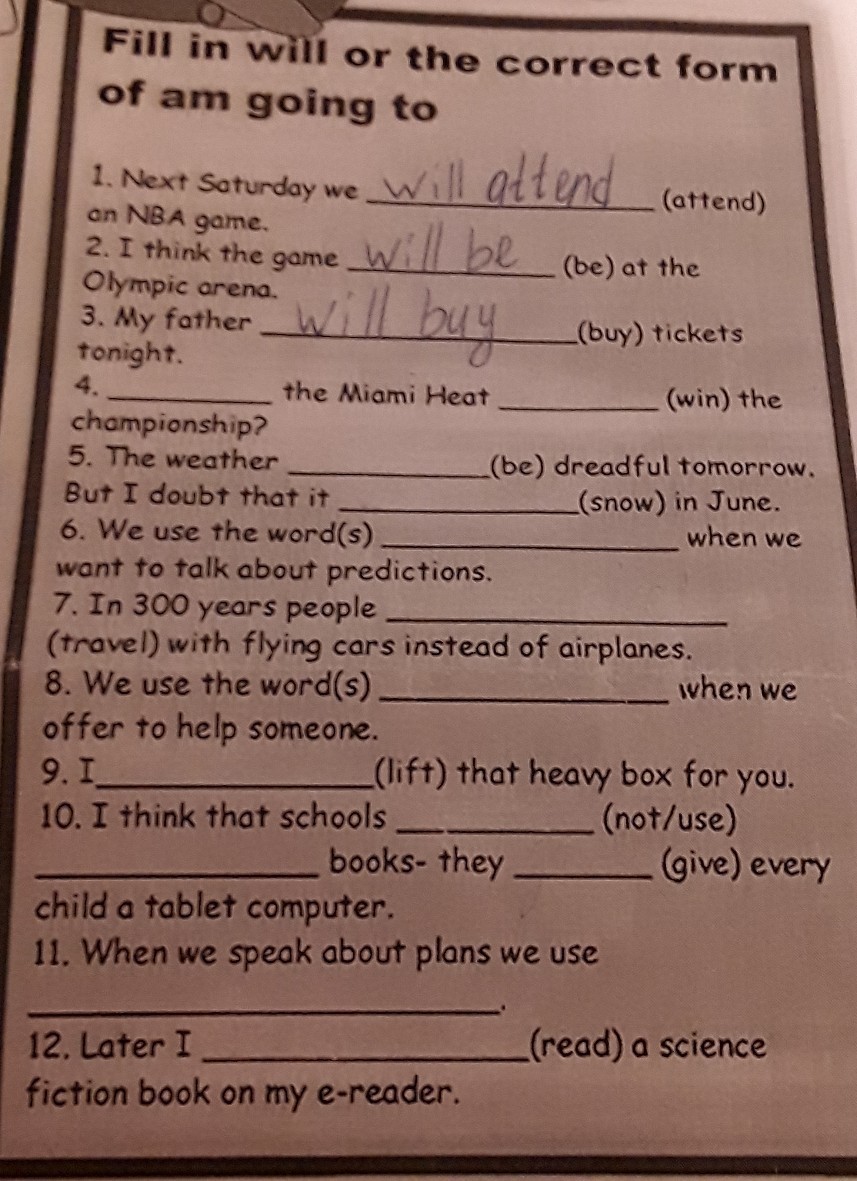 Fill in will or the correct form
of am going to
1. Next Saturday we will attend (attend)
an NBA game.
2. I think the game will be (be) at the
Olympic arena.
3. My father will buy (buy) tickets
tonight.
4. __________ the Miami Heat __________ (win) the
championship?
5. The weather __________ (be) dreadful tomorrow.
But I doubt that it __________ (snow) in June.
6. We use the word(s) __________ when we
want to talk about predictions.
7. In 300 years people __________
(travel) with flying cars instead of airplanes.
8. We use the word(s) __________ when we
offer to help someone.
9. I__________(lift) that heavy box for you.
10. I think that schools __________ (not/use)
__________ books- they __________ (give) every
child a tablet computer.
11. When we speak about plans we use
__________.
12. Later I __________(read) a science
fiction book on my e-reader.